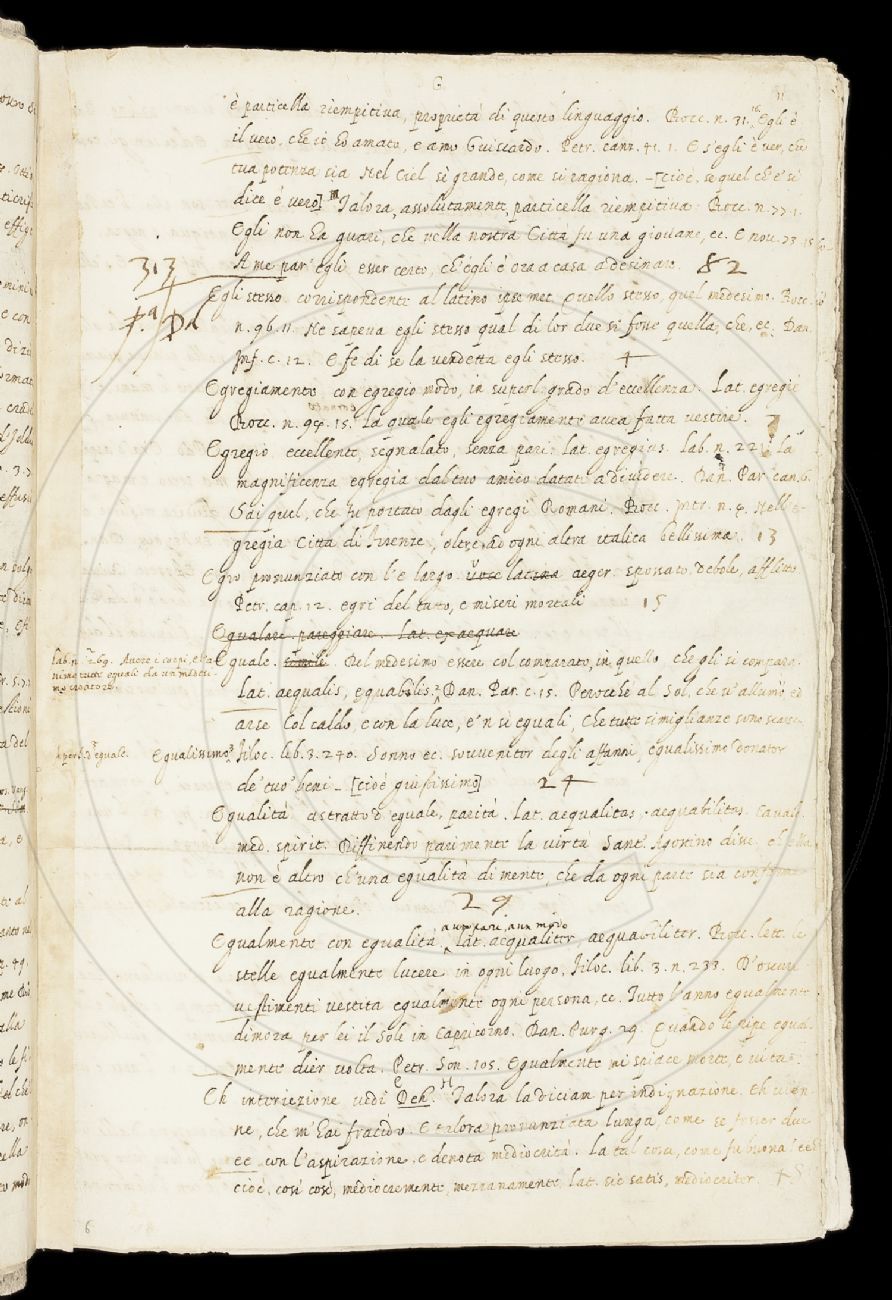 è particella riempitiva, proprietà di questo linguaggio. Bocc. n. 31. 16. Egli è
il vero, che io ho amato, e amo Guiscardo. Petr. canz. 41. 1. E s'egli è ver, che
tua potenza sia Nel Ciel si grande, come si ragiona. - [cioè. se quel ch'e' si
dice è vero] Talora, assolutamente, particella riempitiva. Bocc. n. 77. 1.
Egli non ha guari, che nella nostra Città fu una giovane, ec. E nov. 73. 15.
A me par' egli esser certo, ch'egli è ora a casa a desinare. 82
313
Egli stesso. corrispondente al latino ipsemet. Quello stesso, quel medesimo. Bocc.
n. 96. 11. Ne sapeva egli stesso qual di lor due si fosse quella, che, ec. Dan.
Inf. c. 12. E fe di se la vendetta egli stesso. 4
Egregiamente con egregio modo, in superl. grado d'eccellenza. Lat. egregie
Bocc. n. 94. 15. la quale egli egregiamente avea fatta vestire. 7
Egregio eccellente, segnalato, senza pari. lat. egregius. Lab. n. 221. La
magnificenza egregia dal tuo amico datati a dividere. Dan. Par. can. 6.
Sai quel, che fu portato dagli egregi Romani. Bocc. Intr. n. 4. Nell'e-
gregia Città di Firenze, oltre ad ogni altra italica bellissima. 13
Egro pronunziato con l'e largo. voce latina aeger. spossato. debole, afflitto
Petr. cap. 12. egri del tutto, e miseri mortali 15
Egualare. pareggiare. Lat. exaequare
Lab. n. 269. Avere i corpi, e l'a-
nime tutte eguali da un medesi-
mo creatore.
Eguale. simile. Del medesimo essere col comparato, in quello che gli si compara.
Lat. aequalis, equabilis. Dan. Par. c. 15. Perocchè al Sol, che v'allumò ed
arse Col caldo, e con la luce, e' n sì eguali, Che tutte simiglianze sono scarse.
superl. d'eguale. Egualissimo Filoc. lib. 3. 240. Sonno ec. sovvenitor degli affanni, egualissimo donator
de' tuo' beni - [cioè giustissimo] 24
Egualità. astratto d'eguale, parità. Lat. aequalitas, aequabilitas. Cavalc.
med. spirit. Diffinendo parimente la virtù Sant' Agostino disse, ch'ella
non è altro ch'una egualità di mente, che da ogni parte sia conforme
alla ragione. 29
Egualmente con egualità, a un pari, a un modo lat. aequaliter, aequabiliter. Bocc. lett. le
stelle egualmente lucere in ogni luogo. Filoc. lib. 3. n. 233. D'oscuri
vestimenti vestita egualmente ogni persona, ec. Tutto l'anno egualmente
dimora per lei il Sole in Capricorno. Dan. Purg. 29. Quando le ripe egual-
mente dier volta. Petr. Son. 105. Egualmente mi spiace morte, e vita.
Eh interiezione vedi Deh. Talora la diciam per indignazione. Eh vien-
ne, che m'hai fracido. E talora pronunziata lunga, come se fosser due
ee con l'aspirazione. e denota mediocrità. La tal cosa, come fu buona? eeh
cioè, così così, mediocremente, mezzanamente lat. sic satis, mediocriter.
6